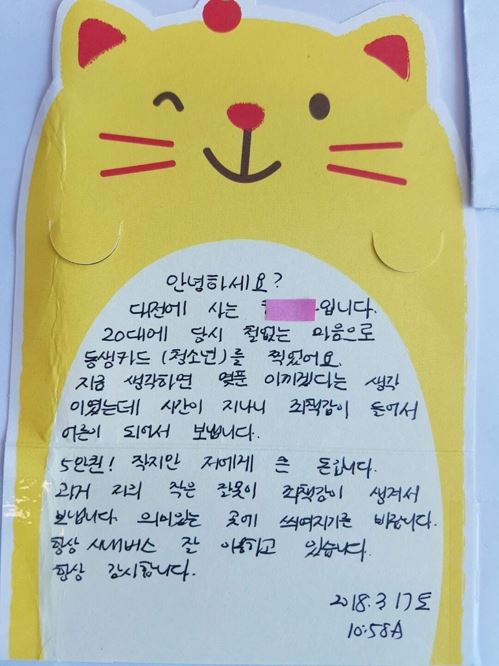 안녕하세요?
대전에 사는 입니다.
20대에 당시 철없는 마음으로
동생카드 (청소년)를 찍었어요.
지금 생각하면 몇푼 아끼겠다는 생각
이었는데 시간이 지나니 죄책감이 들어서
어른이 되어서 보냅니다.
5만원! 작지만 저에게 큰 돈입니다.
과거 저의 작은 잘못이 죄책감이 생겨서
보냅니다. 의미있는 곳에 쓰여지기를 바랍니다.
항상 시내버스 잘 이용하고 있습니다.
항상 감사합니다.
2018. 3. 17 토
10:58A